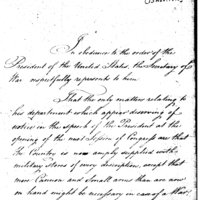 In obedience to the order of the
President of the United States, the Secretary of
War respectfully represents to him.
That the only matters relating to
his department which appear deserving of
notice in the speech of the President at the
opening of the next Session of Congress are that
The Country is now amply supplied with
military Stores of every description, except that
more Cannon and Small arms than are now
on hand might be necessary in case of a War,